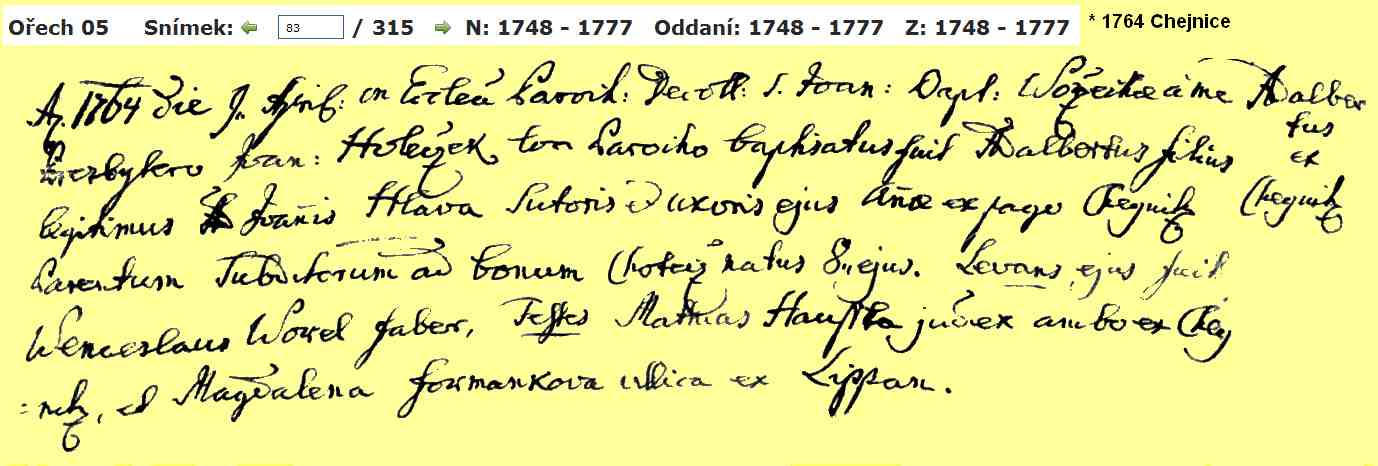 Ořech 05 Snímek: 83 / 315 N: 1748 - 1777 Oddaní: 1748 - 1777 Z: 1748 - 1777
* 1764 Chejnice
A. 1764 die 9. April: in Ecclea Paroch: Decoll: S. Joan: Bapt: â me Adalber
tus
Presbytero Joan: Holeczek baptisatus fuit Adalbertus filius ex
legitimus Joañis Hlava Sutoris et uxoris ejus Añae ex pago Chegnitz Chegnitz
Parentum Subditorum ad bonum Chotecz natus 8. ejus. Levans ejus fuit
Wenceslaus Worel faber, Testes Mathias Hauszka judex ambo ex Chey
= nitz, et Magdalena formankova ex Lippan.